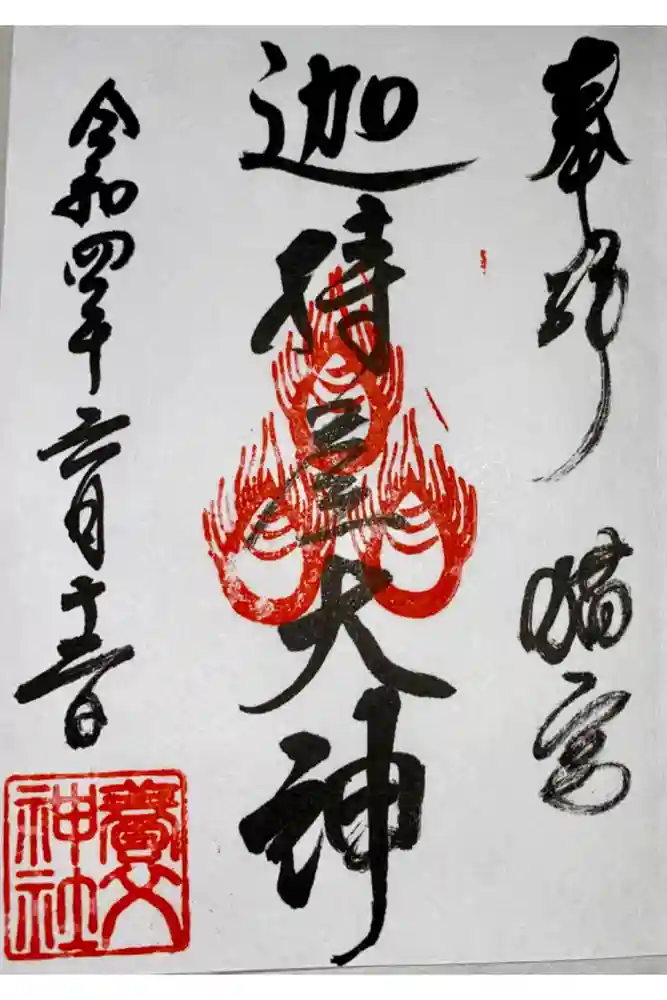 奉拝 猫宮
迦
大神
令和四年六月十三日
養父
神社